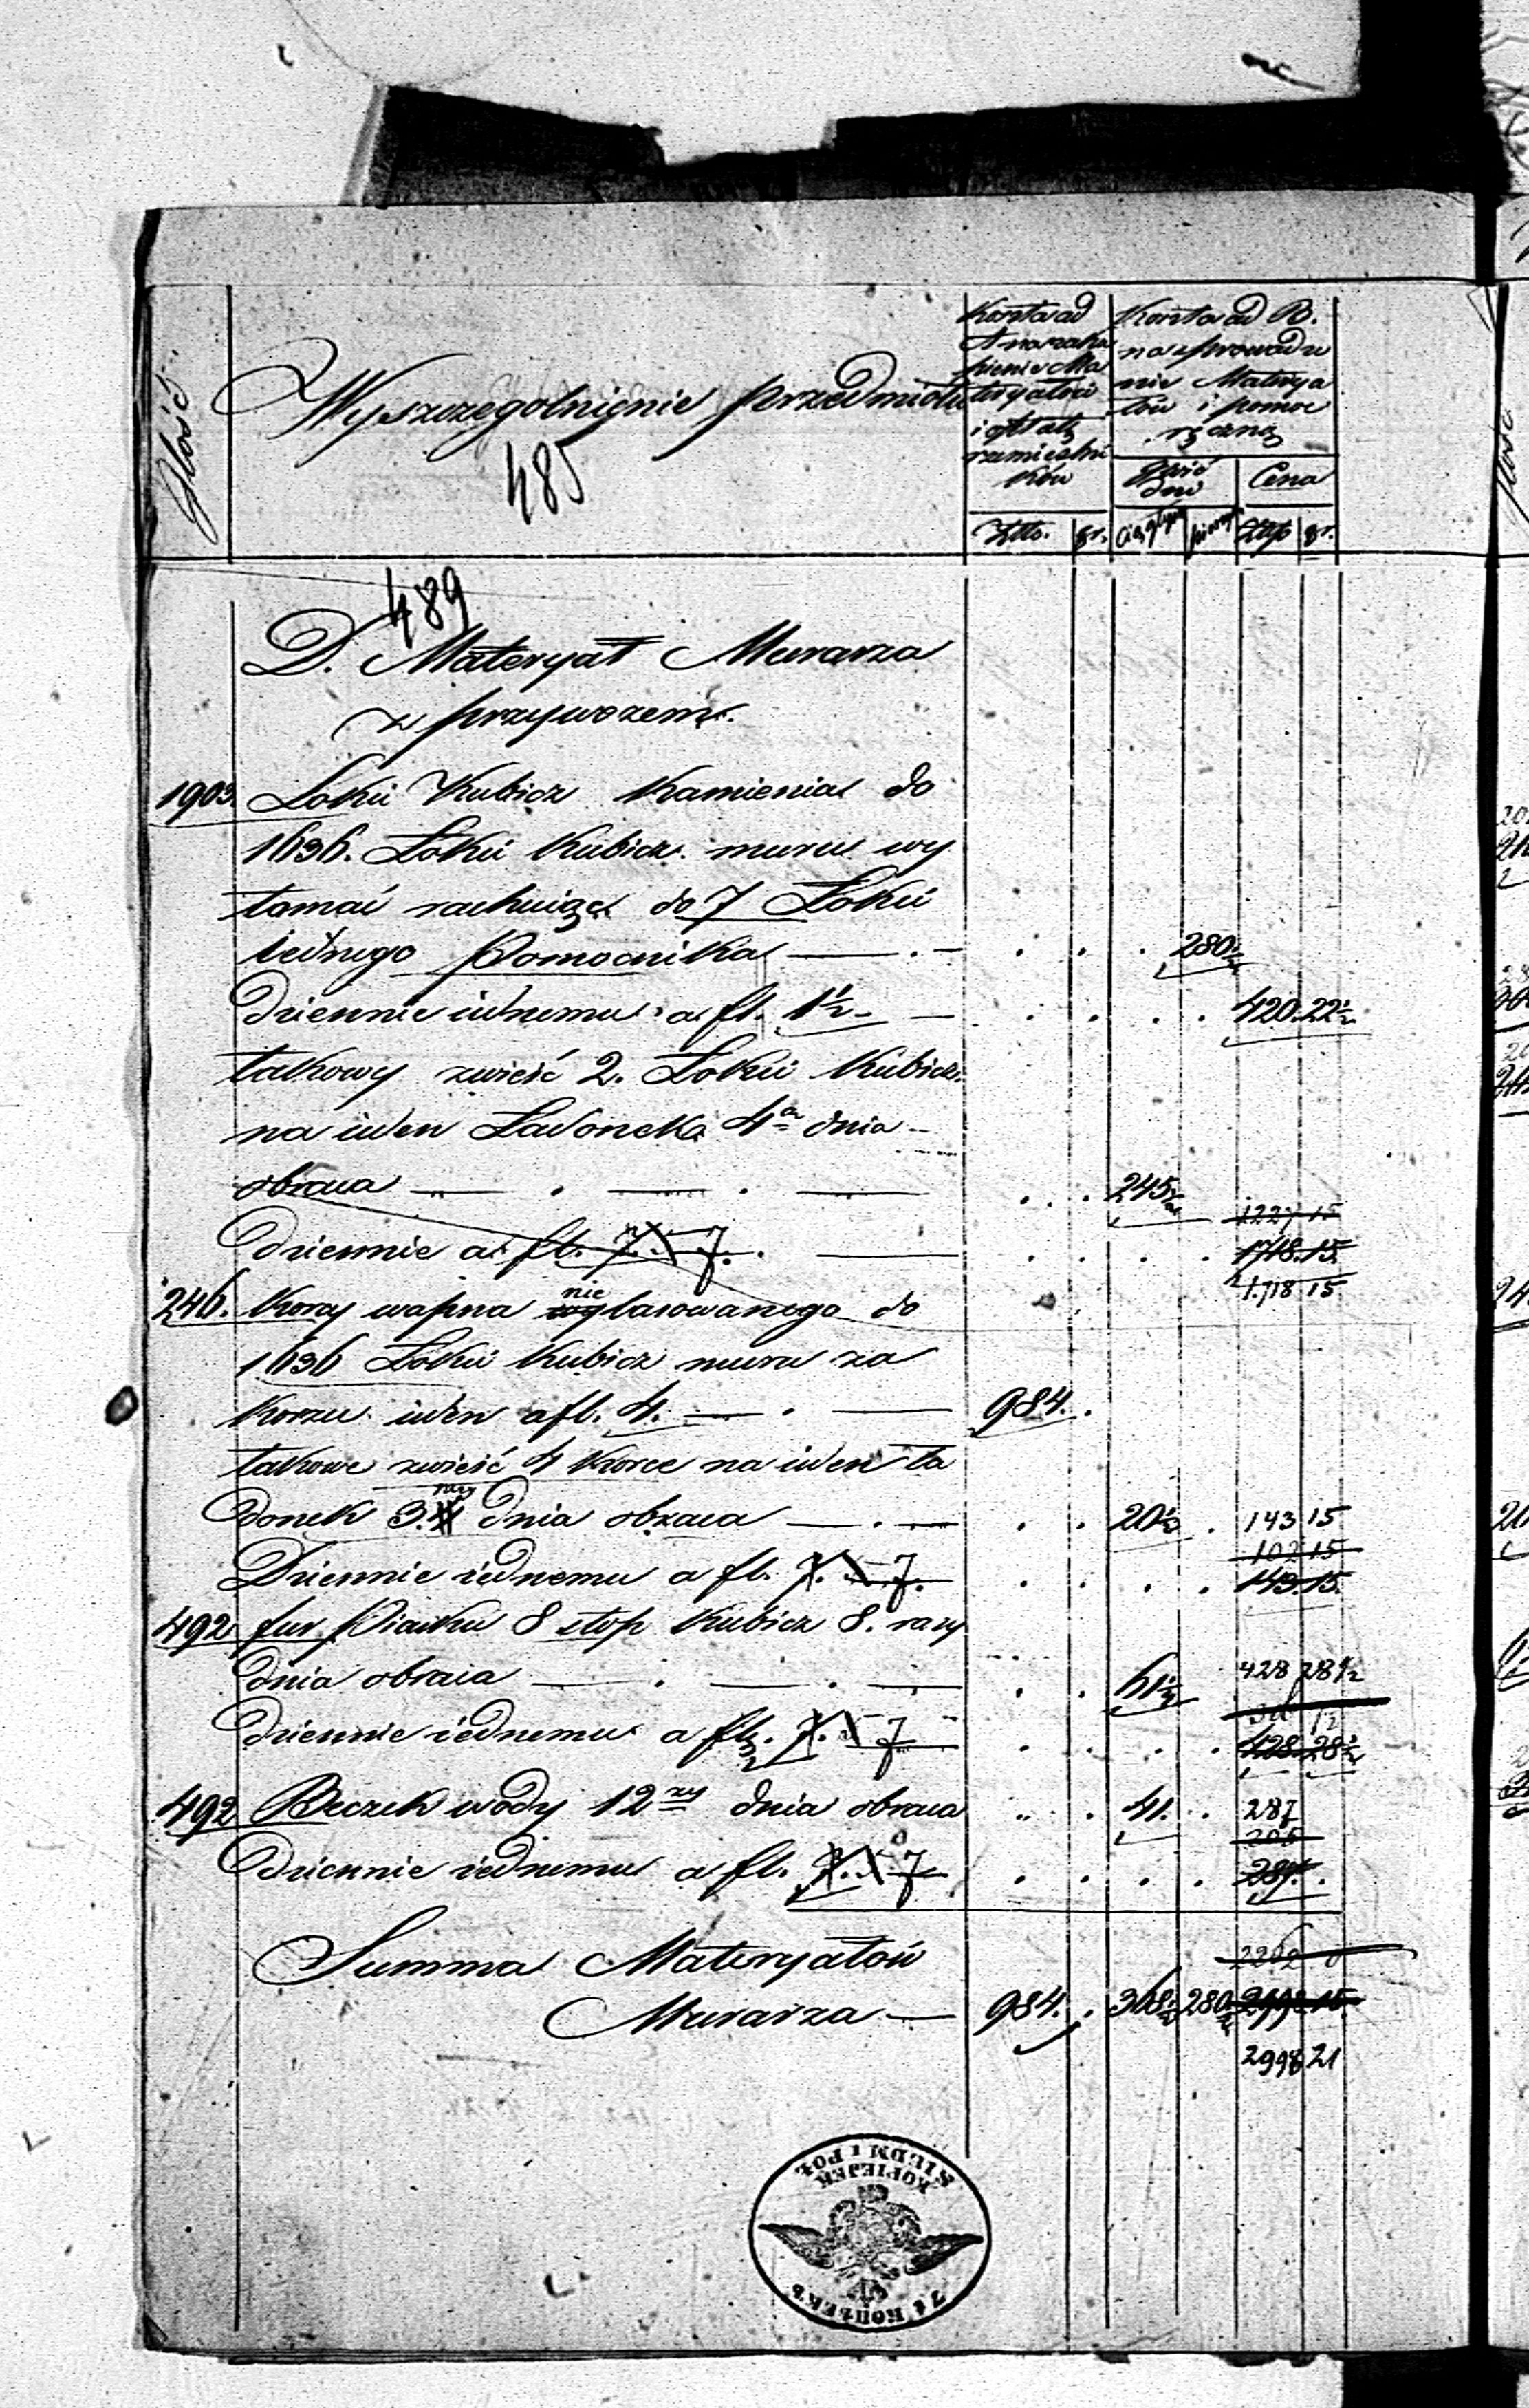 Ilość.
Wyszczegolnienie przedmiotu
485
Koszta ad
A na zaku
pienie Ma
teryałów
i opłatę
rzemieślni
ków
Koszta ad B.
na sprowadze
nie Materya
łów i pomoc
ręczną
Ilość
dni
Cena
Złto. gr. ciągłych pieszych Złtp gr.
489
D. Materyał Murarza
z przywozem.
1903. Łokci Kubicz. Kamienia do
1636. Łokci Kubicz. muru wy
łamać rachuiąc do 7 Łokci
iednego Pomocnika 280
dziennie iednemu a fl. 1½ 420. 22½
takowy zwieść 2. Łokci Kubicz.
na ieden Ładonek 4a dnia
obraca 245½
1227 15
dziennie a fl. 7. 5 7. 1718. 15.
1718 15
246. Korcy wapna nie lasowanego do
1636 Łokci Kubicz muru za
Korzec ieden a fl. 4. 984.
takowe zwieść 4 Korce na ieden ła
donek 3. razy dnia obraca 20½ 143 15
102 15
Dziennie iednemu a fl. 7. 5 7. 143 15.
492 fur Piasku 8 stop Kubicz 8. razy
dnia obraca 61½ 428 28½
dziennie iednemu a fl. 7. 5 7 428 28½
492 Beczek wody 12 zy dnia obraca 41. 287
205
dziennie iednemu a fl. 7. 5 7 287.
Summa Materyałów
Murarza 984. 368 280 2998 15
2998 21
SIEDM I POŁ
KOPIEJEK
7½ КОПѢЕКЪ